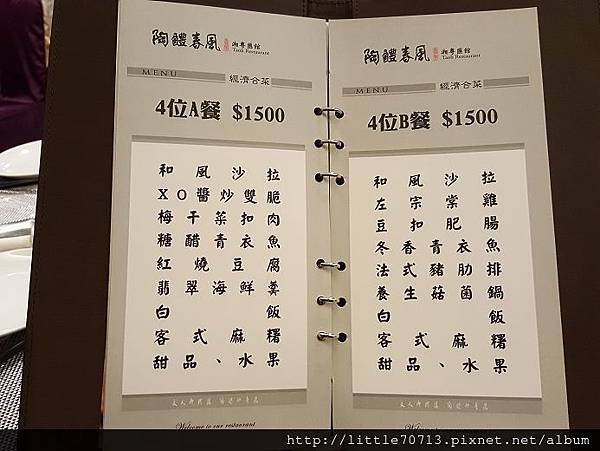 陶鱧春風
湘粵匯館
Taoli Restaurant
MENU
經濟合菜
4位A餐 $1500
和風沙拉
XO醬炒雙脆
梅干菜扣肉
糖醋青衣魚
紅燒豆腐
翡翠海鮮羹
白飯
客式麻糬
甜品、水果
Welcome to our restaurant
陶鱧春風
湘粵匯館
Taoli Restaurant
MENU
經濟合菜
4位B餐 $1500
和風沙拉
左宗棠雞
豆扣肥腸
冬香青衣魚
法式豬肋排
養生菇菌鍋
白飯
客式麻糬
甜品、水果
Welcome to our
http://little70713.pixnet.net/album